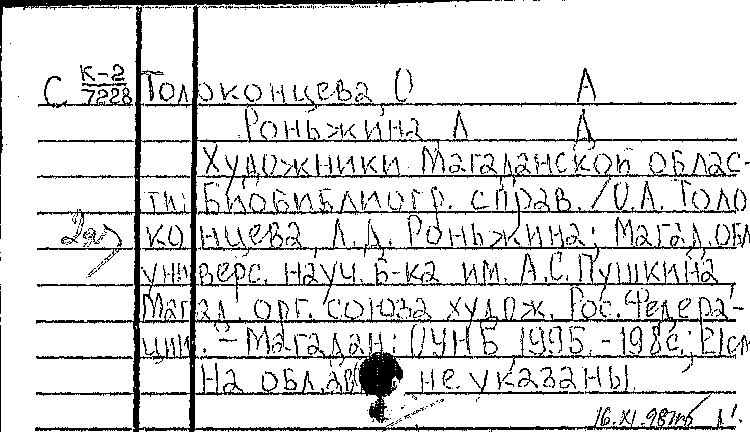 С К-2/7228 Толоконцева, О А
Роньжина, Л Д
Художники Магаданской облас-
ти: Биобиблиогр. справ. / О.А. Толо
концева, Л.Д. Роньжина; Магад. обл
универс. науч. б-ка им. А.С. Пушкина,
Магад. орг. союза худож. Рос. Федера-
ции. - Магадан: ОУНБ, 1995. - 198с.; 21см
На обл. авт. не указаны.
16.XI.98